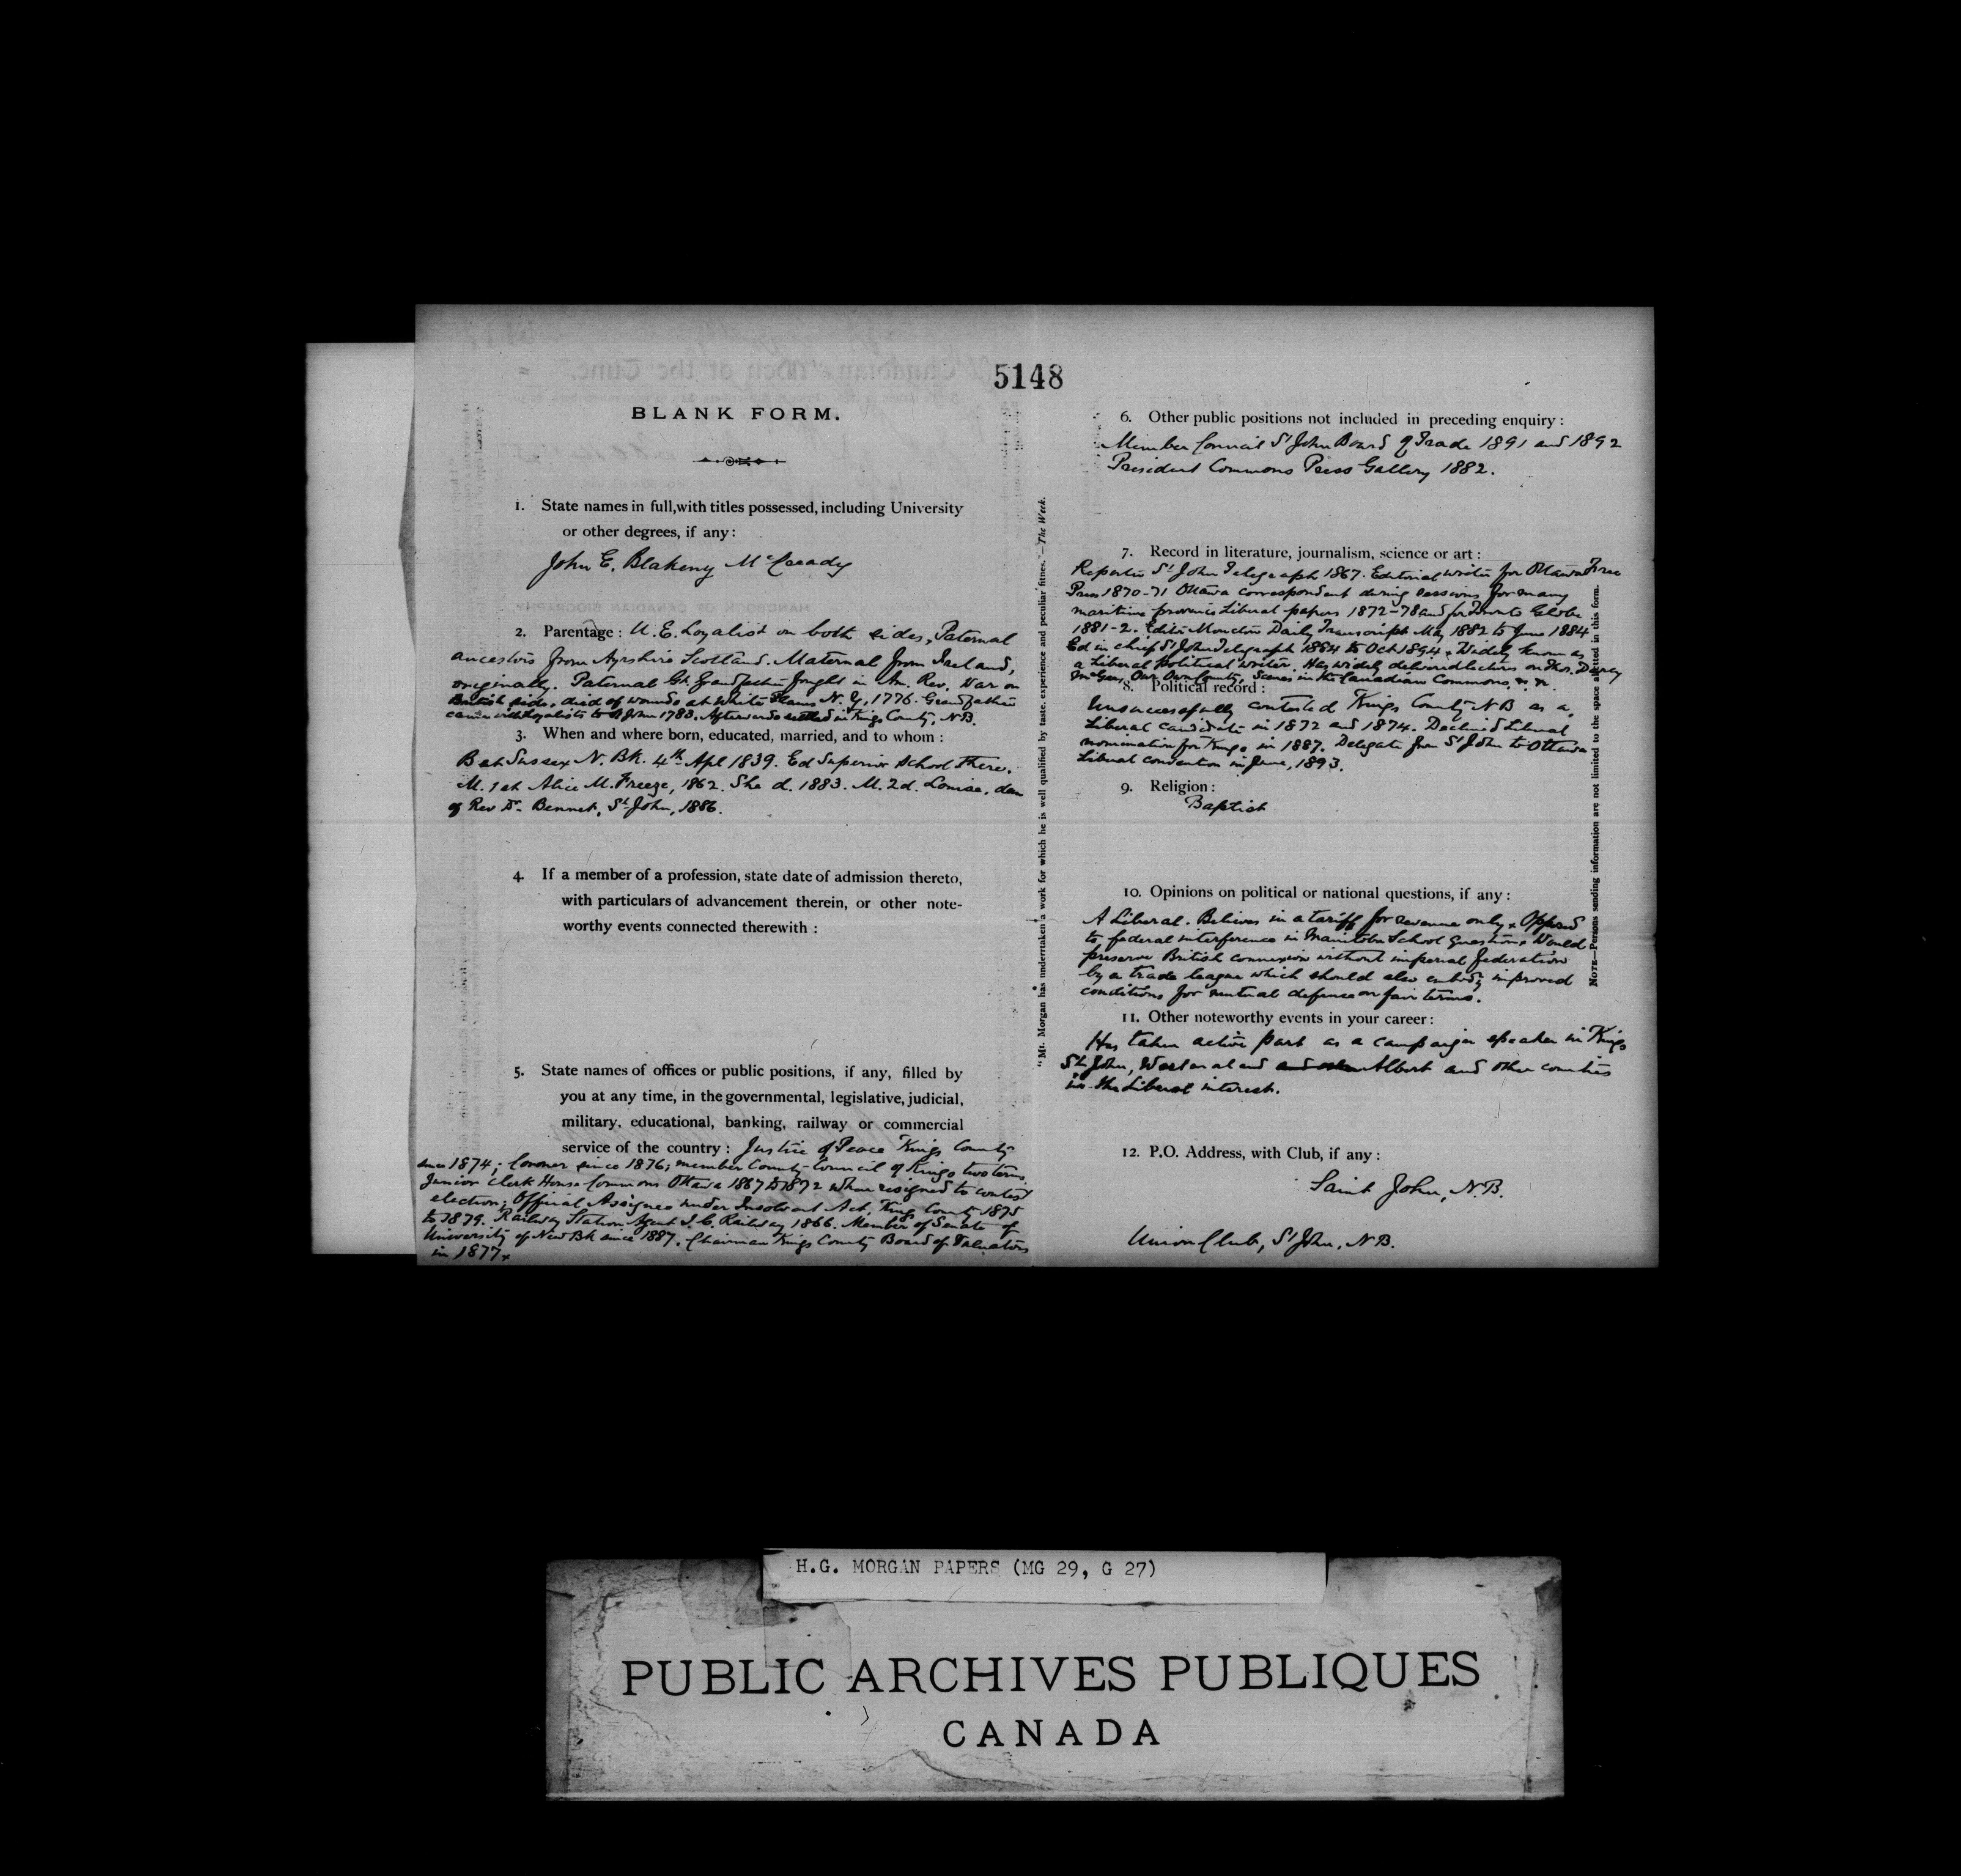 5148
BLANK FORM.
1. State names in full, with titles possessed, including University
or other degrees, if any:
John E. Blakeny McCready
2. Parentage: U. E. Loyalist on both sides, Paternal
ancestors from Ayrshire Scotland. Maternal from Ireland,
originally. Paternal Gt. Grandfather fought in Am. Rev. War on
British side, died of wounds at White Plains N.Y, 1776. Grandfather
came with Loyalists to St John 1783. Afterwards settled in Kings County, N.B.
3. When and where born, educated, married, and to whom:
B at Sussex N. Bk. 4th Apl 1839. Ed Superior School there.
M. 1st Alice M. Freeze, 1862. She d. 1883. M. 2d. Louisa, dau
of Rev Dr. Bennet, St. John, 1886.
4. If a member of a profession, state date of admission thereto,
with particulars of advancement therein, or other note-
worthy events connected therewith:
5. State names of offices or public positions, if any, filled by
you at any time, in the governmental, legislative, judicial,
military, educational, banking, railway or commercial
service of the country: Justice of Peace Kings County
since 1874; Coroner since 1876; member County Council of Kings two terms.
Junior Clerk House Commons Ottawa 1867 to 1872 when resigned to contest
election; Official Assignee under Insolvent Act, Kings County 1875
to 1879. Railway Station Agent I. C. Railway 1866. Member of Senate of
University of New Bk since 1887. Chairman Kings County Board of Valuators
in 1877.
"Mr. Morgan has undertaken a work for which he is well qualified by taste, experience and peculiar fitnes."—The Week.
6. Other public positions not included in preceding enquiry:
Member Council St John Board of Trade 1891 and 1892
President Commons Press Gallery 1882.
7. Record in literature, journalism, science or art:
Reporter St. John Telegraph 1867. Editorial writer for Ottawa Free
Press 1870-71 Ottawa correspondent during sessions for many
maritime province Liberal papers 1872-78 and for Toronto Globe
1881-2. Editor Moncton Daily Transcript May 1882 to June 1884
Ed in chief St John Telegraph 1884 to Oct 1894. Widely known as
a Liberal Political writer. Has widely delivered lectures on Thos. Darcy
McGee, Our Own County, Scenes in the Canadian Commons, &. &.
8. Political record:
Unsuccessfully contested Kings County N B as a
Liberal candidate in 1872 and 1874. Declined Liberal
nomination for Kings in 1887. Delegate from St John to Ottawa
Liberal convention in June, 1893.
9. Religion:
Baptist
10. Opinions on political or national questions, if any:
A Liberal. Believes in a tariff for revenue only. Opposed
to federal interference in Manitoba School question. Would
preserve British connexion without imperial federation
by a trade league which should also embody improved
conditions for mutual defense on fair terms.
11. Other noteworthy events in your career:
Has taken active part as a campaign speaker in Kings
St. John, Westmorland Albert and other counties
in the Liberal interest.
12. P.O. Address, with Club, if any:
Saint John, N.B.
Union Club, St John, N.B.
NOTE—Persons sending information are not limited to the space allotted in this form.
H.G. MORGAN PAPERS (MG 29, G 27)
PUBLIC ARCHIVES PUBLIQUES
CANADA